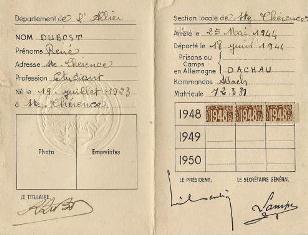 Département de l'Allier
NOM DUBOST
Prénoms René
Adresse Ste Thérence
Profession Etudiant
Né le 19 juillet 1923
à Ste Thérence
Photo
Empreintes
LE TITULAIRE
Section locale de Ste Thérence
Arrêté le 25 Mai 1944
Déporté le 18 juin 1944
Prisons ou
Camps
en Allemagne DACHAU
Kommandos Allach
Matricule
1948 1948 1948 1948
1949
1950
LE PRÉSIDENT, LE SECRÉTAIRE GÉNÉRAL